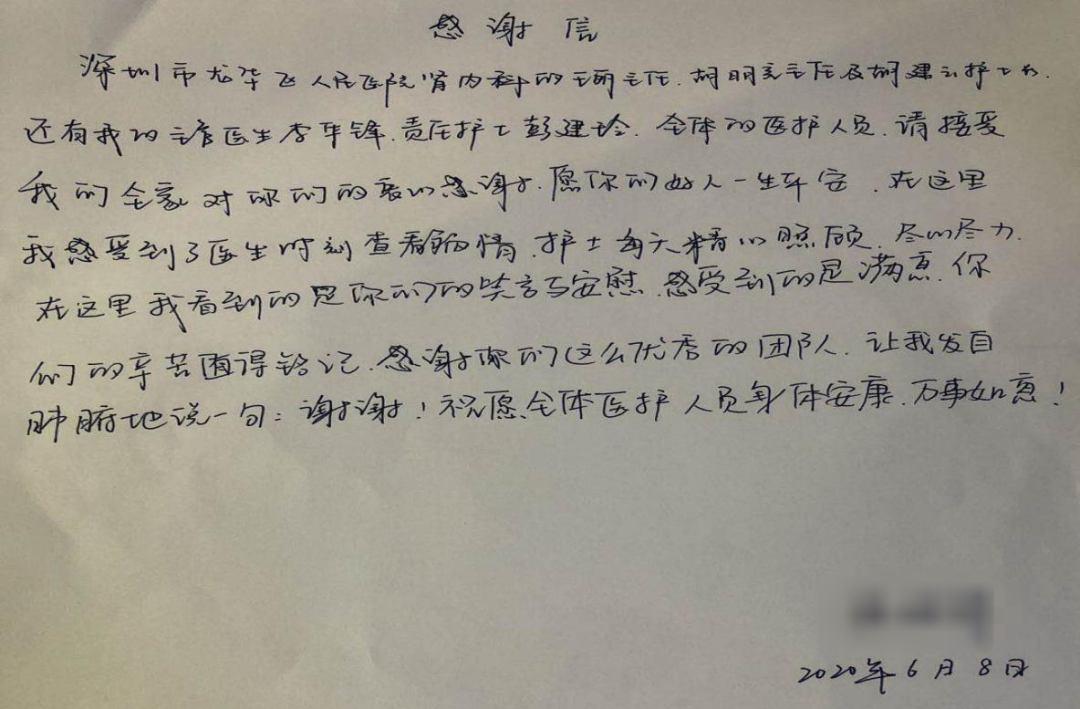 感谢信
深圳市龙华区人民医院肾内科的王珊主任.胡明亮主任及胡建云护士长.
还有我的主管医生李年锋.责任护士彭建珍.全体的医护人员.请接受
我们全家对你们的衷心感谢.愿你们好人一生平安.在这里
我感受到了医生时刻查看病情.护士每天精心照顾.尽心尽力.
在这里我看到的是你们的笑言与安慰.感受到的是满意.你
们的辛苦值得铭记.感谢你们这么优秀的团队.让我发自
肺腑地说一句:谢谢!祝愿全体医护人员身体安康.万事如意!
2020年6月8日